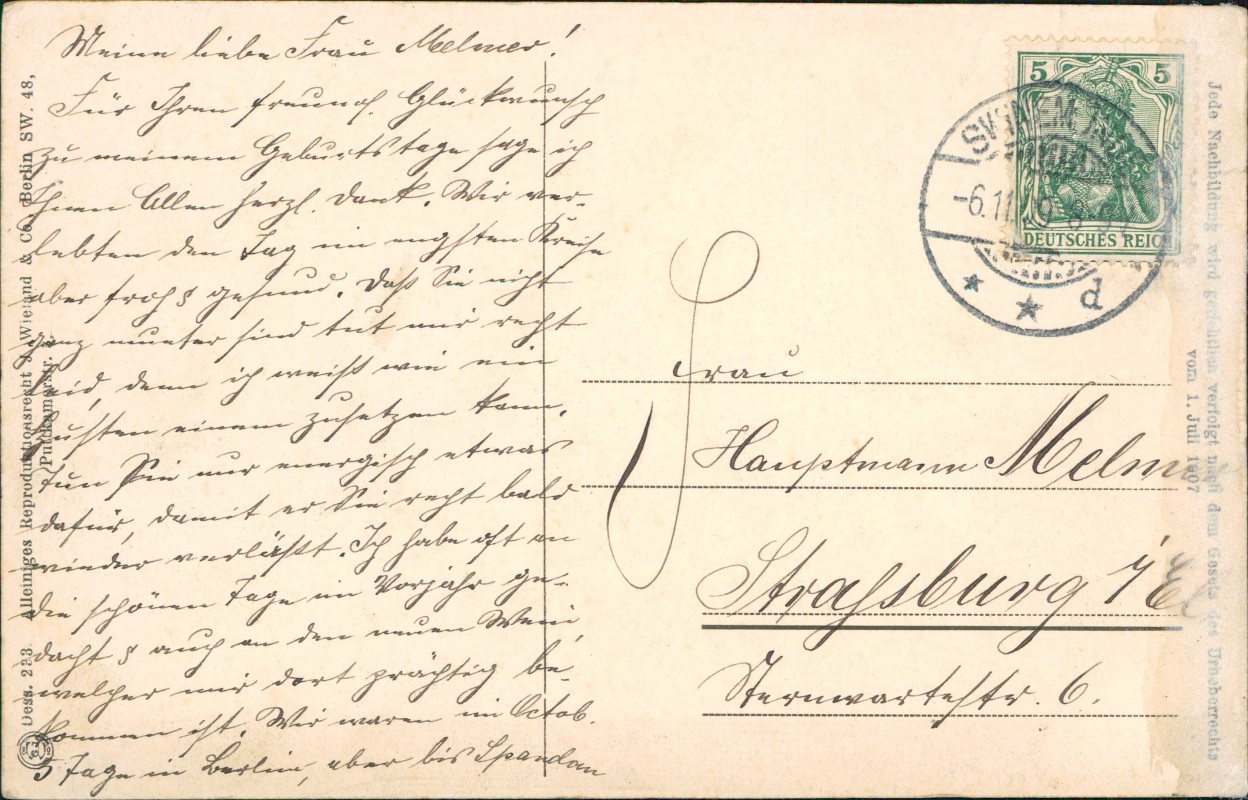 Meine liebe Frau Melmer!
Für Ihren freundl. Glückwunsch
zu meinem Geburtstage sage ich
Ihnen Allen herzl. Dank. Wir ver-
lebten den Tag im engsten Kreise
aber froh & gesund. Daß Sie nicht
ganz munter sind tut mir recht
leid, denn ich weiß wie ein
Husten einem zusetzen kann.
Tun Sie nur energisch etwas
dafür, damit er Sie recht bald
wieder verläßt. Ich habe oft an
die schönen Tage im Vorjahr ge-
dacht & auch an den neuen Wein,
welcher mir dort prächtig be-
kommen ist. Wir waren im Octob.
5 Tage in Berlin, aber bis Spandau
Dess. 223. Alleiniges Reproduktionsrecht J. Wieland & Co. Berlin SW. 48,
Puttkamerstr.
5 5
DEUTSCHES REICH
-6.11.
d
Frau
Hauptmann Melm
Straßburg i/El
Sternwartestr. 6.
Jede Nachbildung wird gerichtlich verfolgt nach dem Gesetz des Urheberrechts
vom 1. Juli 1907